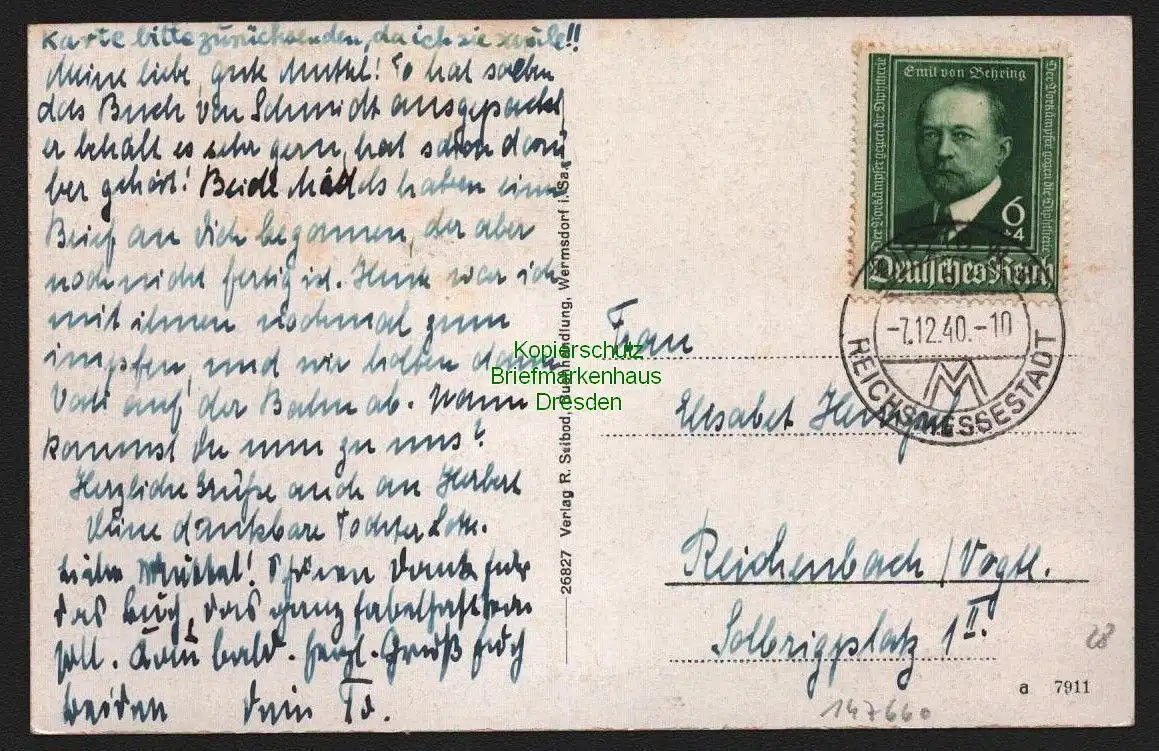 Karte bitte zurücksenden, da ich sie
Meine liebe, gute Muttel! To hat soeben
das Buch von Schmidt ausgepackt
er behält es sehr gern, hat schon darü
ber gehört! Beide Mädels haben einen
Brief an Dich begonnen, der aber
noch nicht fertig ist. Heute war ich
mit ihnen nochmal zum
impfen, und wir holten dann
Vati auf der Bahn ab. Wann
kommst du nun zu uns?
Herzliche Grüße auch an Herbert
Deine dankbare Tochter Lotte.
Liebe Muttel! Schönen Dank für
das Buch, das ganz fabelhaft sein
soll. Komm bald. Herzl. Gruß Euch
beiden Dein To.
26827 Verlag R. Seibod, Buchhandlung, Wermsdorf i. Sa.
Emil von Behring
Der Vorkämpfer gegen die Diphtherie
Der Vorkämpfer gegen die Diphtherie
6
+4
Deutsches Reich
-7.12.40.-10
REICHSMESSESTADT
Frau
Elisabet
Reichenbach / Vogtl.
Solbrigplatz 1 II.
28
a 7911
147660
Kopierschutz
Briefmarkenhaus
Dresden